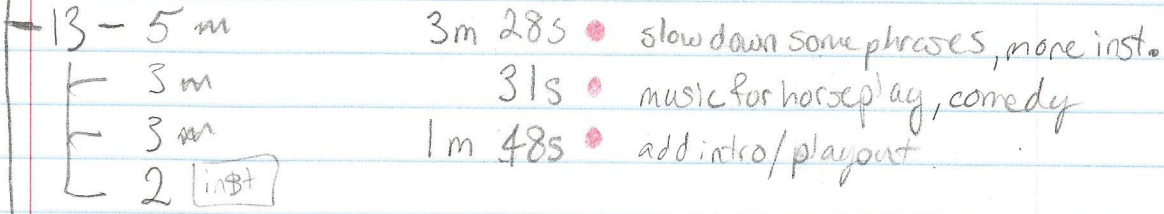 13 - 5 m 3m 28s • slow down some phrases, more inst.
3 m 31s • music for horseplay, comedy
3 m 1m 48s • add intro/playout
2 inst